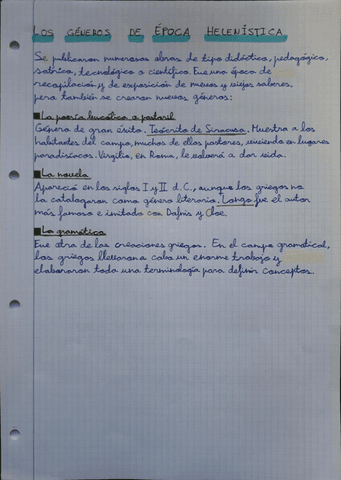 LOS GÉNEROS DE ÉPOCA HELENÍSTICA
Se publicaron numerosas obras de tipo didáctico, pedagógico,
satírico, tecnológico o científico. Fue una época de
recopilación y de exposición de nuevos y viejos saberes,
pero también se crearon nuevos géneros:
La poesía bucólica o pastoril
Género de gran éxito. Teócrito de Siracusa. Muestra a los
habitantes del campo, muchos de ellos pastores, viviendo en lugares
paradisíacos. Virgilio, en Roma, le volverá a dar vida.
La novela
Apareció en los siglos I y II d.C., aunque los griegos no
la catalogaron como género literario. Longo fue el autor
más famoso e imitado con Dafnis y Cloe.
La gramática
Fue otra de las creaciones griegas. En el campo gramatical,
los griegos llevaron a cabo un enorme trabajo y
elaboraron toda una terminología para definir conceptos.